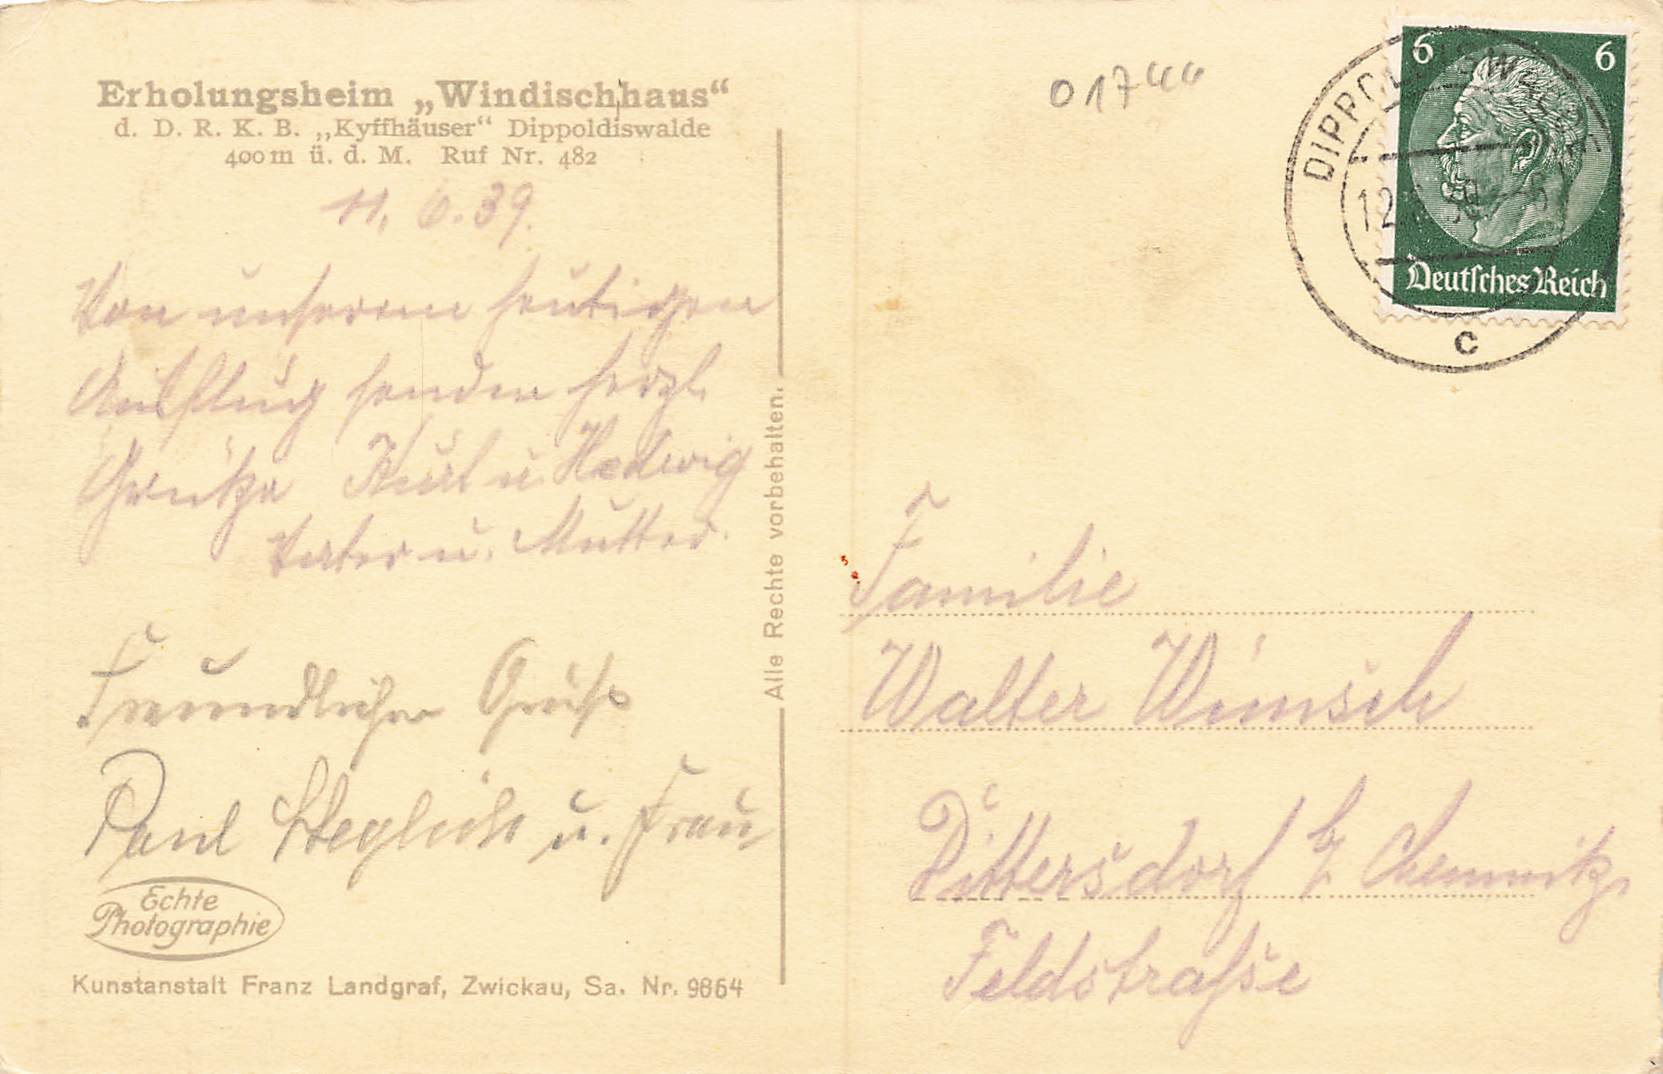 Erholungsheim „Windischhaus“
d. D. R. K. B. „Kyffhäuser“ Dippoldiswalde
400 m ü. d. M. Ruf Nr. 482
11. 6. 39.
Von unserem heutigen
Ausflug senden herzl.
Grüße Kurt u. Hedwig
Vater u. Mutter.
Freundlichen Gruß
Paul Steglich u. Frau
Echte
Photographie
Kunstanstalt Franz Landgraf, Zwickau, Sa. Nr. 9864
Alle Rechte vorbehalten.
01744
6 6
Deutsches Reich
DIPPOLDISWALDE
12
c
Familie
Walter Wünsch
Dittersdorf b/ Chemnitz,
Feldstraße